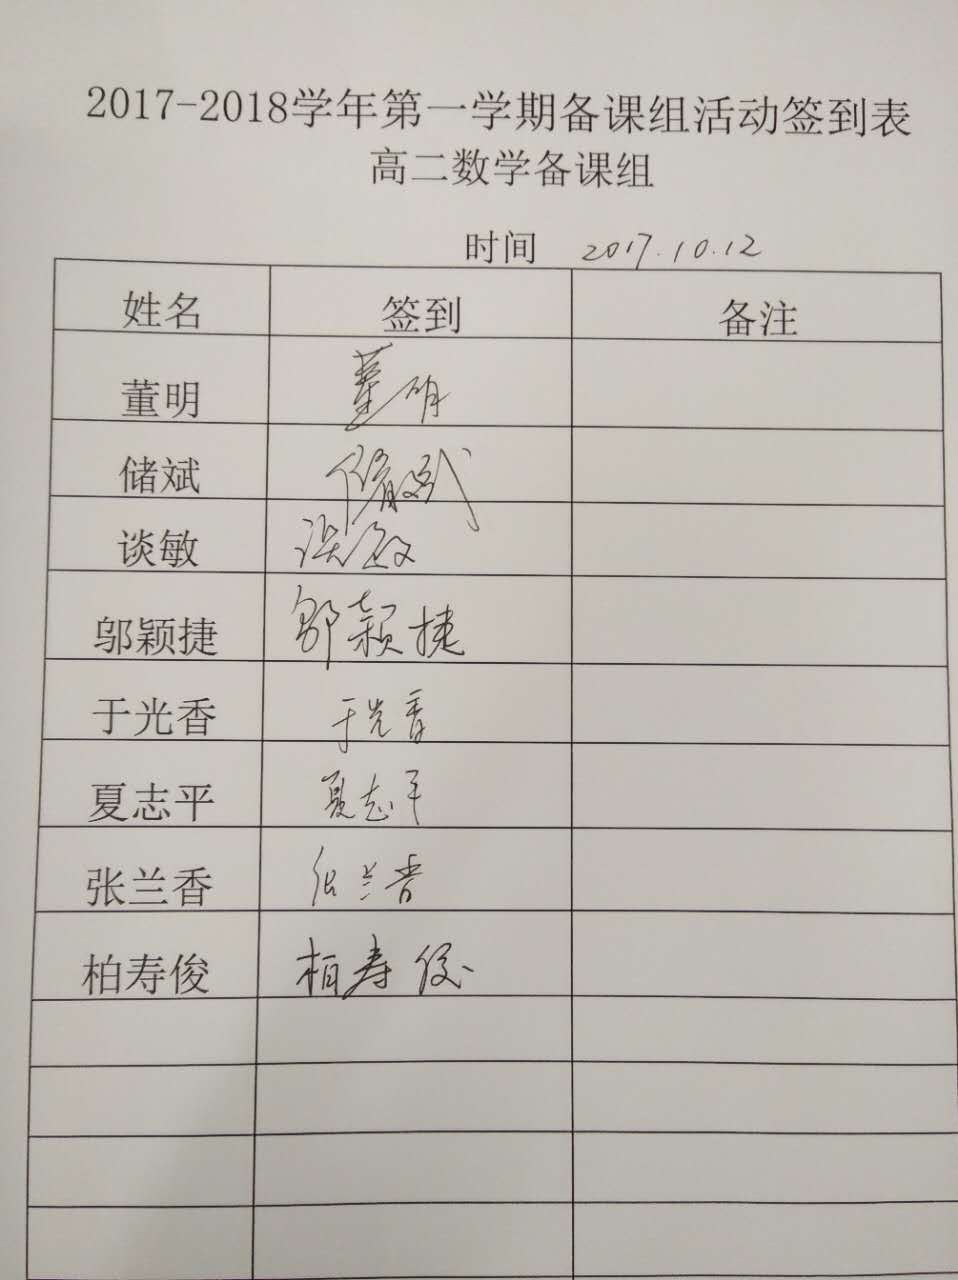 2017-2018学年第一学期备课组活动签到表
高二数学备课组
时间 2017.10.12
姓名 签到 备注
董明 董明
储斌 储斌
谈敏 谈敏
邬颖捷 邬颖捷
于光香 于光香
夏志平 夏志平
张兰香 张兰香
柏寿俊 柏寿俊